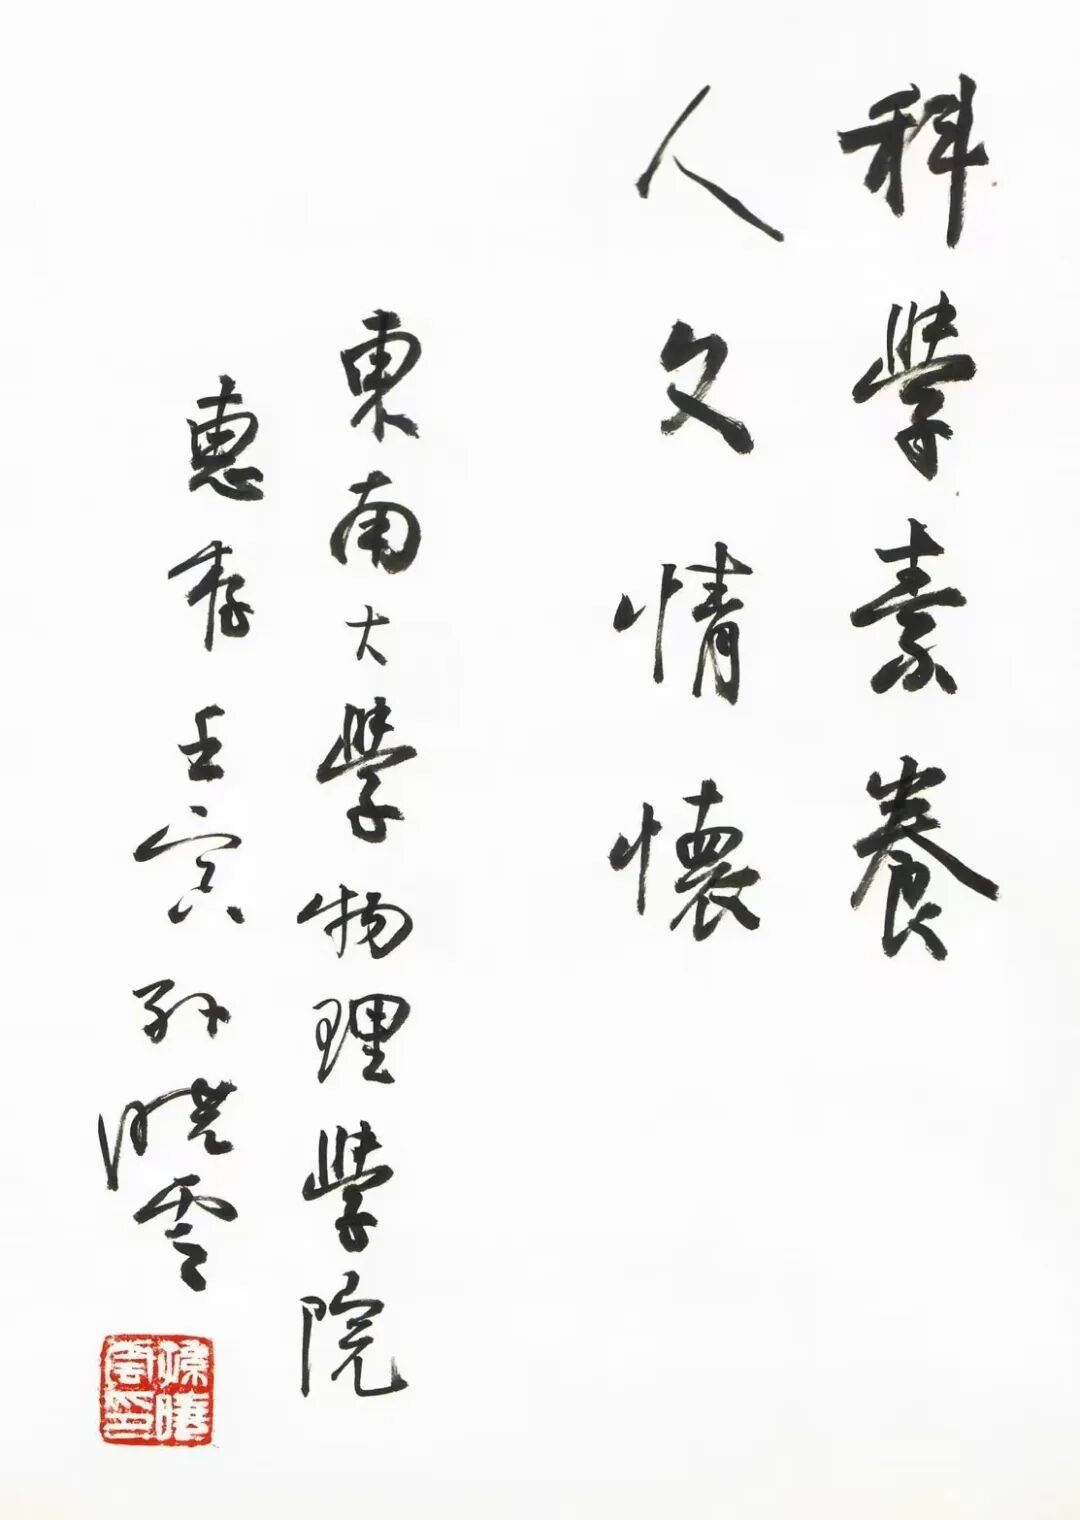 科學素養
人文情懷
東南大學物理學院
惠存 壬寅 孙曉雲
孫曉
雲印